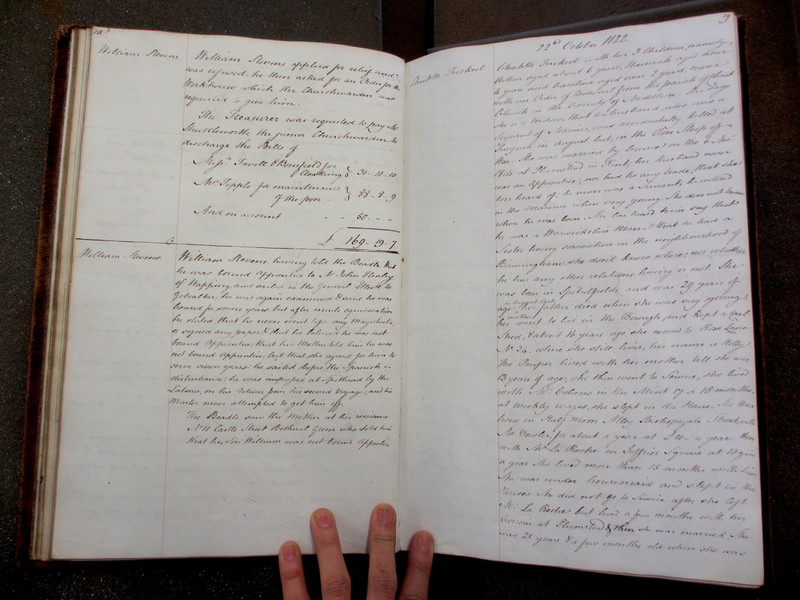 18
William Stevens
William Stevens applied for relief and
was refused, he then asked for an Order for the
Workhouse which the Churchwarden was
requested to give him.
The Treasurer was requested to pay Mr
Shuttleworth the junior Churchwarden to
discharge the Bills of
Messrs Favell & Bousfield for
Cloathing } 31 - 10 - 10
Mr Tipple for maintenance
of the poor } 88 - 8 - 9
And on account - - 50 - - -
£ 169 - 19 - 7
William Stevens
William Stevens having told the Beadle that
he was bound Apprentice to Mr John Henley
of Wapping, and sailed in the General Elliott to
Gibralter, he was again examined & said he was
bound for seven years but after much equivocation
he stated that he never went before any Magistrate
or signed any paper & that he believes he was not
bound Apprentice, that his Mother told him he was
not bound Apprentice but that she agreed for him to
serve seven years. he sailed before the Spanish
disturbance, he was impressed at Spithead by the
on his return from his second Voyage, and his
Master never attempted to get him off.
The Beadle saw the Mother at her residence
No 11 Castle Street Bethnal Green who told him
that her Son William was not bound Apprentice
9
22nd October 1822
Charlotte Trickett
Charlotte Trickett with her 3 Children, namely,
William aged about 6 years, Hannah aged about
4 years and Caroline aged near 2 years, came
with an Order of Removal from the parish of
Church in the County of She says
she is a Widow, that her husband, who was a
Sergeant of Marines, was accidentally killed at
in August last in the Sloop of
War. She was married by banns on the 6 Nov
1814 at Plumstead in Kent, her husband never
was an Apprentice, nor had he any trade, that she
ever heard of, he never was a Servant, he entered
in the Marines when very young. She does not know
when he was born. She has heard him say that
he was a Warwickshire Man, & that he had a
Sister living somewhere in the neighbourhood of
Birmingham, she don't know where, nor whether
he has any other relations living or not. She
was born in Spitalfields and was 29 years of
age Her father died when she was very young,
her mother went to live in the Borough and kept a Coal
Shed, & about 16 years ago she moved to Rose Lane
No 34, where she still lives, her name is
The Pauper lived with her mother till she was
13 years of age, she then went to Service, she lived
with Mr Cohens in the Mint 17 or 18 months
at weekly wages, she slept in the House. She then
lived in Half Moon Alley Bishopsgate Street with
Mr for about a year at £10 a year then
with Mr La Roche in Jeffries Square at 10 Gns
a year She lived more than 18 months with him
She was under housemaid and slept in the
house. She did not go to Service after she left
Mr La Roche but lived a few months with her
Cousin at Plumstead & then she was married. She
was 21 years & a few months old when she was